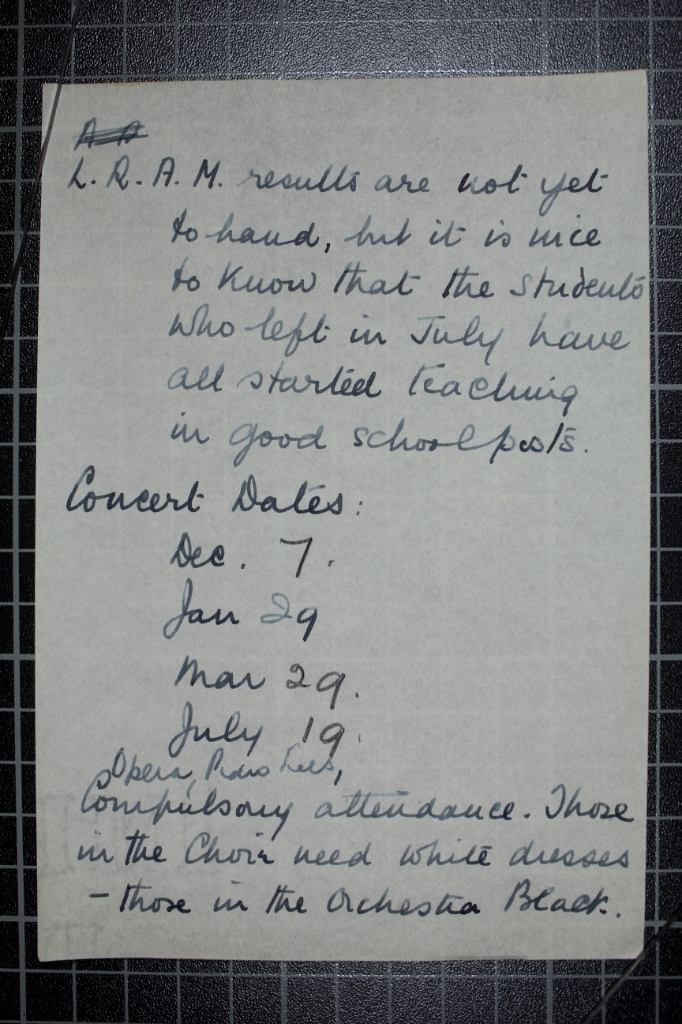 L. R. A. M. results are not yet
to hand, but it is nice
to know that the students
who left in July have
all started teaching
in good school posts.
Concert Dates:
Dec. 7.
Jan 29
Mar 29.
July 19.
Opera,
Compulsory attendance. Those
in the Choir need white dresses
- those in the Orchestra Black.